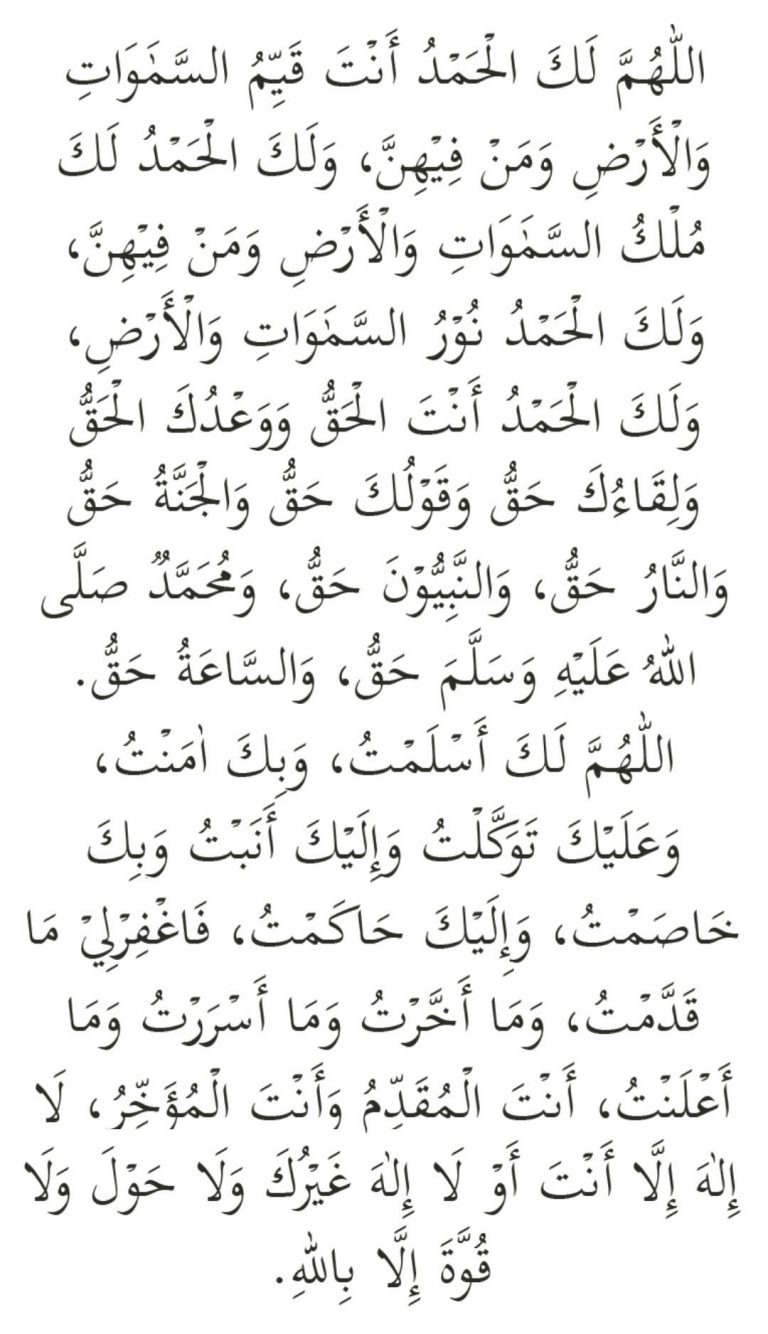 اللّٰهُمَّ لَكَ الْحَمْدُ أَنْتَ قَيِّمُ السَّمٰوَاتِ
وَالْأَرْضِ وَمَنْ فِيْهِنَّ، وَلَكَ الْحَمْدُ لَكَ
مُلْكُ السَّمٰوَاتِ وَالْأَرْضِ وَمَنْ فِيْهِنَّ،
وَلَكَ الْحَمْدُ نُوْرُ السَّمٰوَاتِ وَالْأَرْضِ،
وَلَكَ الْحَمْدُ أَنْتَ الْحَقُّ وَوَعْدُكَ الْحَقُّ
وَلِقَاءُكَ حَقٌّ وَقَوْلُكَ حَقٌّ وَالْجَنَّةُ حَقٌّ
وَالنَّارُ حَقٌّ، وَالنَّبِيُّوْنَ حَقٌّ، وَمُحَمَّدٌ صَلَّى
اللّٰهُ عَلَيْهِ وَسَلَّمَ حَقٌّ، وَالسَّاعَةُ حَقٌّ.
اللّٰهُمَّ لَكَ أَسْلَمْتُ، وَبِكَ اٰمَنْتُ،
وَعَلَيْكَ تَوَكَّلْتُ وَإِلَيْكَ أَنَبْتُ وَبِكَ
خَاصَمْتُ، وَإِلَيْكَ حَاكَمْتُ، فَاغْفِرْلِيْ مَا
قَدَّمْتُ، وَمَا أَخَّرْتُ وَمَا أَسْرَرْتُ وَمَا
أَعْلَنْتُ، أَنْتَ الْمُقَدِّمُ وَأَنْتَ الْمُؤَخِّرُ، لَا
إِلٰهَ إِلَّا أَنْتَ أَوْ لَا إِلٰهَ غَيْرُكَ وَلَا حَوْلَ وَلَا
قُوَّةَ إِلَّا بِاللّٰهِ.